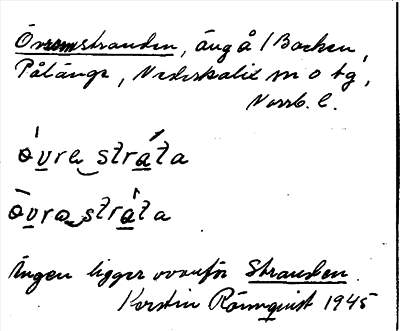 Övreomstranden, äng å /Backen,
Pålänge, Nederkalix m o tg,
Norrb. l.
övre strata
övre strata
Ängen ligger ovanför Stranden.
Kerstin Rönnquist 1945